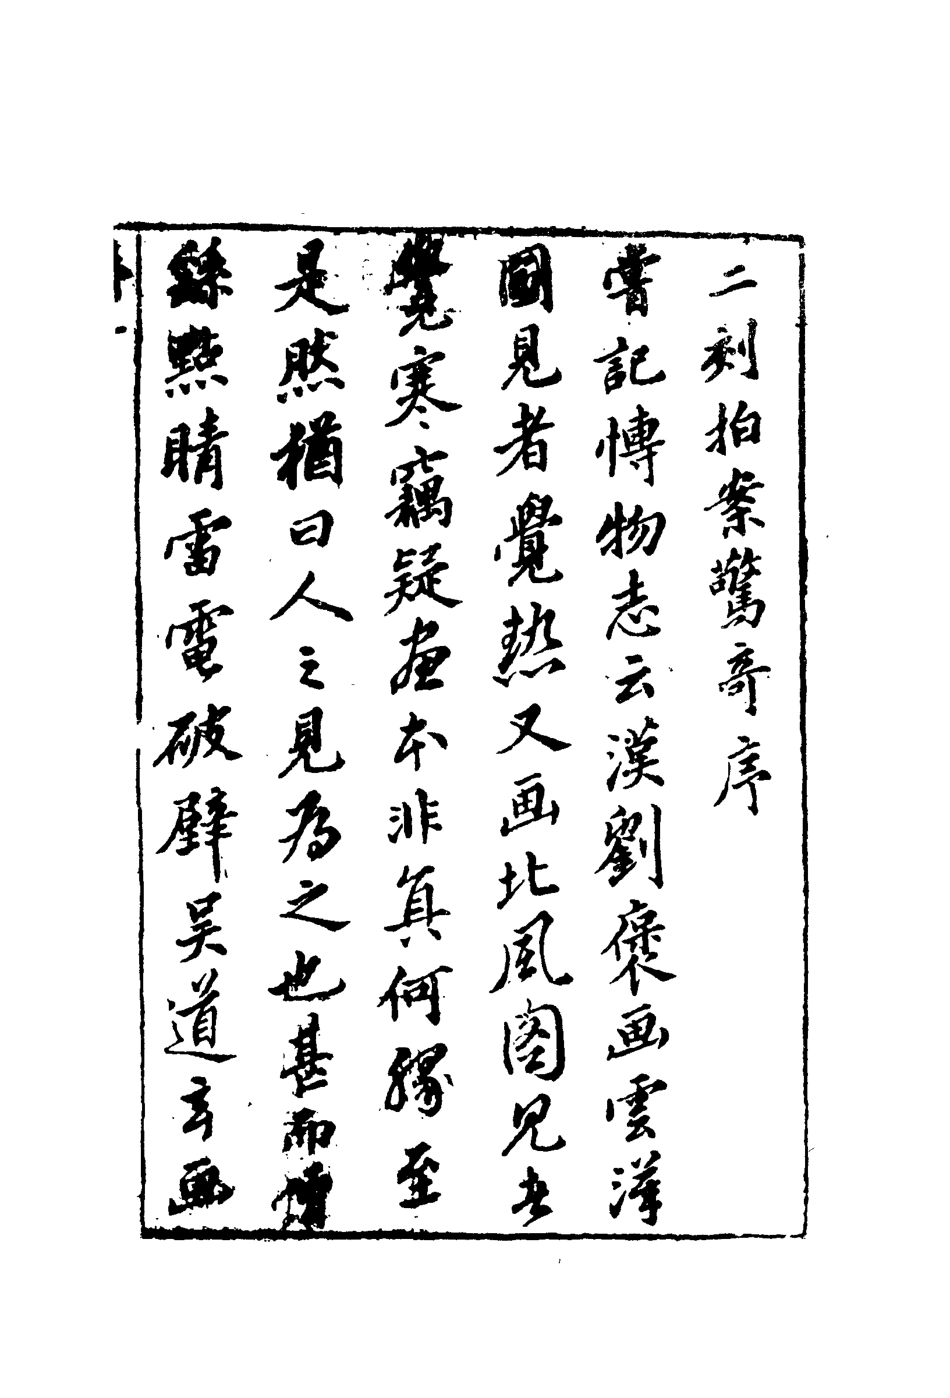 二刻拍案驚奇序
嘗記博物志云漢劉褒画雲漢
圖見者覺熱又画北風圖見者
覺寒竊疑畫本非真何緣至
是然猶曰人之見為之也甚而僧
繇點睛雷電破壁吴道玄画